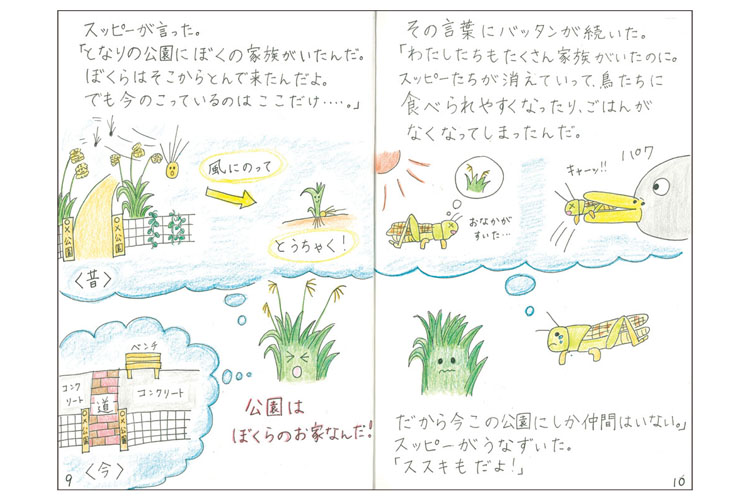 スッピーが言った。
「となりの公園にぼくの家族がいたんだ。
ぼくらはそこからとんで来たんだよ。
でも今のこっているのはここだけ‥‥。」
風にのって
とうちゃく！
〇×公園
〇×公園
〈昔〉
ベンチ
コンクリート
道
コンクリート
〇×公園
〇×公園
〈今〉
公園は
ぼくらのお家なんだ！
9
その言葉にバッタンが続いた。
「わたしたちもたくさん家族がいたのに。
スッピーたちが消えていって、鳥たちに
食べられやすくなったり、ごはんが
なくなってしまったんだ。
おなかが
すいた…
キャーッ!!
パクッ
だから今この公園にしか仲間はいない。」
スッピーがうなずいた。
「ススキもだよ！」
10